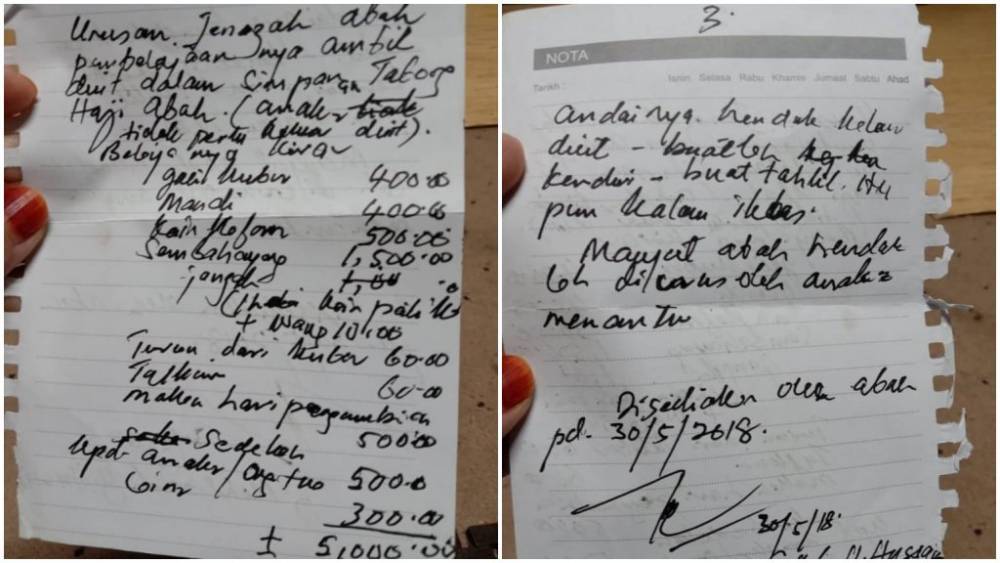 Urusan Jenazah abah
perbelajaannya ambil
duit dalam simpanan Tabong
Haji abah. (anak
tidak perlu keluar duit).
Belanja nya kira
gali kubur 400.00
Mandi 400.00
Kain Kafan 500.00
Sembahayang 1,500.00
jangan
kain pali
+ wang 10.00
Turun dari kubur 60.00
Talkin 60.00
makan hari pegembian
Sedekah 500.00
kpd anak/org tua 500.0
lain 300.00
± 5,000.00
3.
NOTA
Tarikh : Isnin Selasa Rabu Khamis Jumaat Sabtu Ahad
andainya hendak keluar
duit - buatlah
kenduri - buat tahlil. Itu
pun kalau iklas.
Mayyat abah hendak
lah diurus oleh anak2
menantu
Disediakan oleh abah
pd. 30/5/2018.
30/5/18.